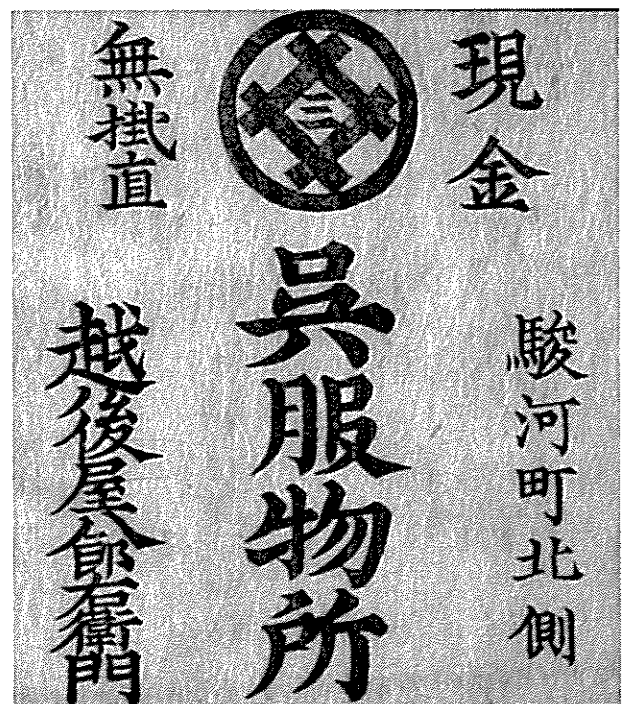 現金
駿河町北側
三
呉服物所
無掛直
越後屋八郎右衛門